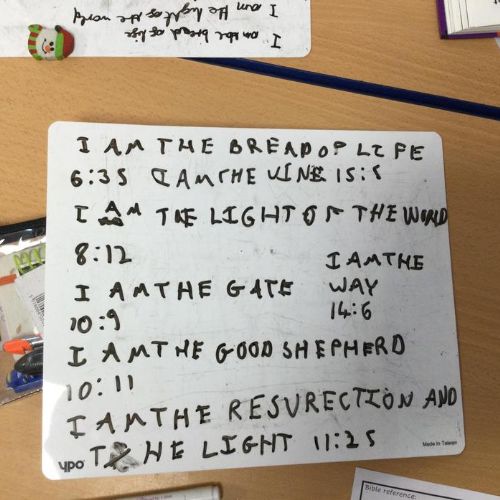 I am the bread of life
I am the light of the world
I AM THE BREAD OF LIFE
6:35 I AM THE VINE 15:5
I AM THE LIGHT OF THE WORLD
8:12
I AM THE
WAY
14:6
I AM THE GATE
10:9
I AM THE GOOD SHEPHERD
10:11
I AM THE RESURECTION AND
THE LIGHT 11:25
ypo
Made in Taiwan
Bible reference: